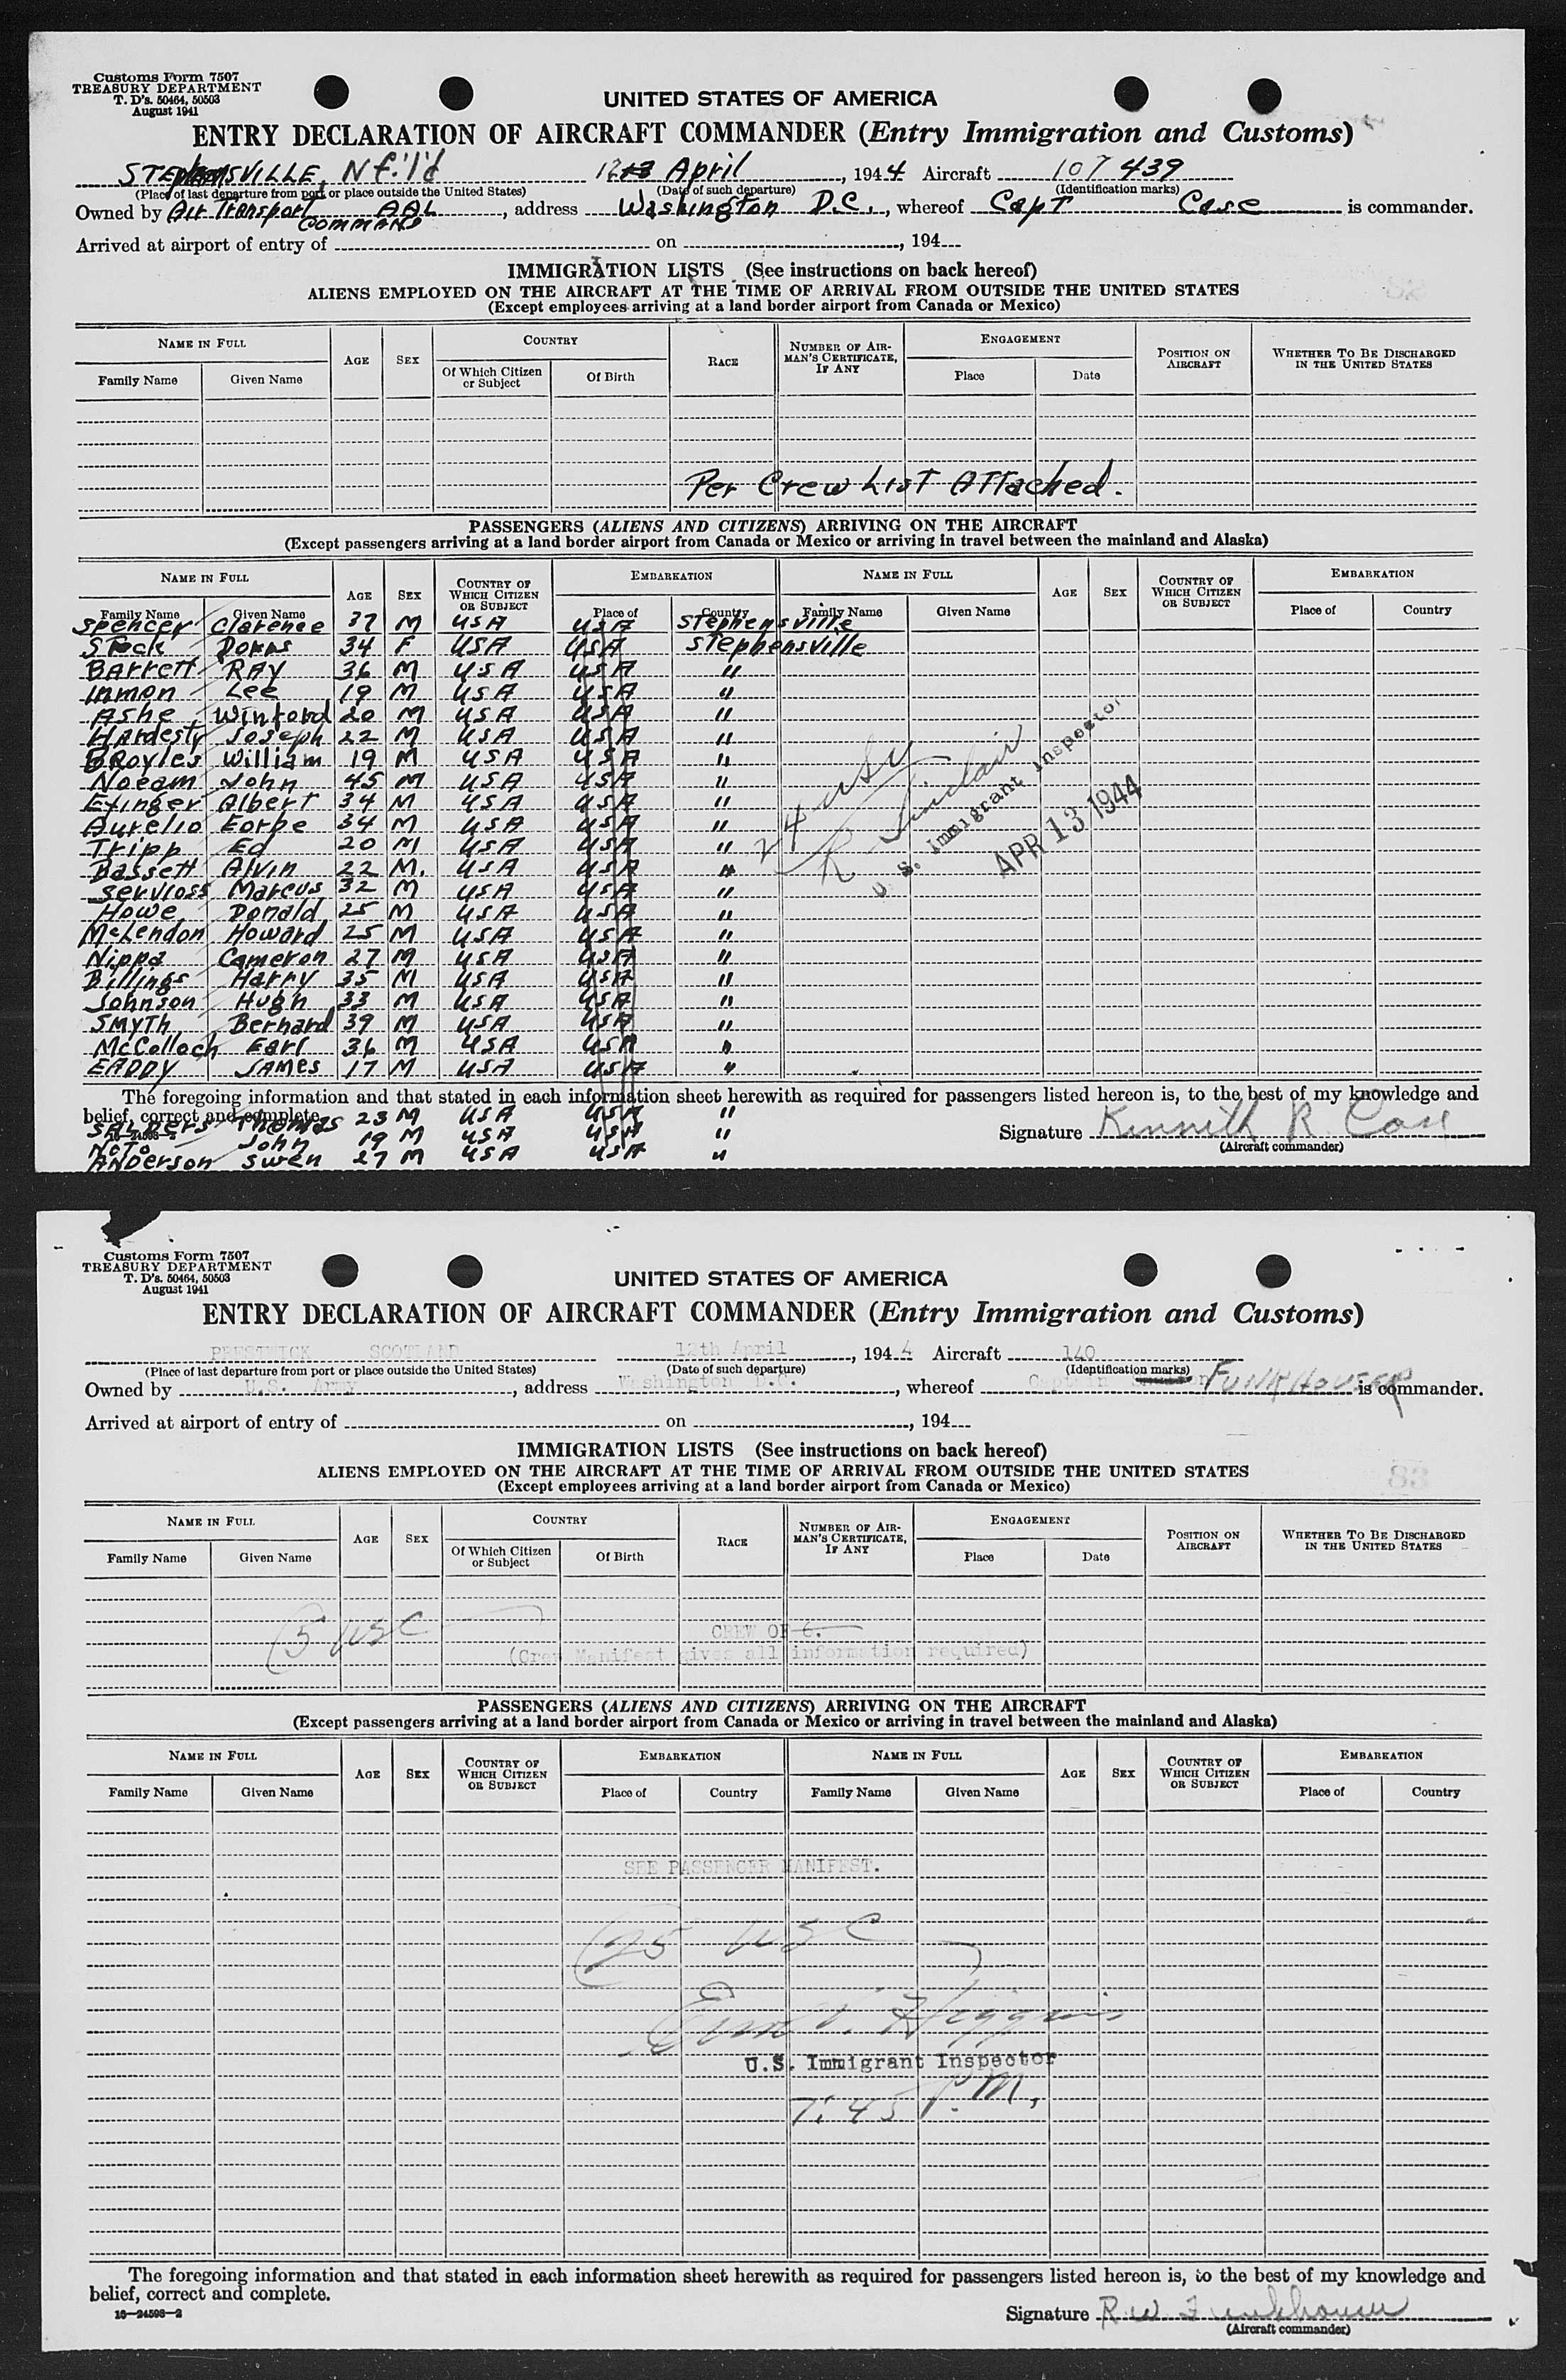 Customs Form 7507
TREASURY DEPARTMENT
T. D's. 50464, 50503
August 1941
UNITED STATES OF AMERICA
ENTRY DECLARATION OF AIRCRAFT COMMANDER (Entry Immigration and Customs)
STEphensVILLE, Nf'l'd 12 April, 1944 Aircraft 107 439
(Place of last departure from port or place outside the United States) (Date of such departure) (Identification marks)
Owned by Air Transport COMMAND AAL, address Washington D.C., whereof Capt Case is commander.
Arrived at airport of entry of on , 194
IMMIGRATION LISTS (See instructions on back hereof)
82
ALIENS EMPLOYED ON THE AIRCRAFT AT THE TIME OF ARRIVAL FROM OUTSIDE THE UNITED STATES
(Except employees arriving at a land border airport from Canada or Mexico)
NAME IN FULL AGE SEX COUNTRY RACE NUMBER OF AIRMAN'S CERTIFICATE, IF ANY ENGAGEMENT POSITION ON AIRCRAFT WHETHER TO BE DISCHARGED IN THE UNITED STATES
Family Name Given Name Of Which Citizen or Subject Of Birth Place Date
Per Crew List Attached.
PASSENGERS (ALIENS AND CITIZENS) ARRIVING ON THE AIRCRAFT
(Except passengers arriving at a land border airport from Canada or Mexico or arriving in travel between the mainland and Alaska)
NAME IN FULL AGE SEX COUNTRY OF WHICH CITIZEN OR SUBJECT EMBARKATION NAME IN FULL AGE SEX COUNTRY OF WHICH CITIZEN OR SUBJECT EMBARKATION
Family Name Given Name Place of Country Family Name Given Name Place of Country
Spencer Clarence 37 M USA USA Stephensville
Steck 34 F USA USA Stephensville
Barrett RAY 36 M USA USA "
Inmon Lee 19 M USA USA "
Ashe Winford 20 M USA USA "
Hardesty Joseph 22 M USA USA "
Broyles William 19 M USA USA "
Noeam John 45 M USA USA "
Efinger Albert 34 M USA USA "
Aurelio Forbe 34 M USA USA "
Tripp Ed 20 M USA USA "
Bassett Alvin 22 M. USA USA "
Servioss Marcus 32 M USA USA "
Howe Donald 25 M USA USA "
McLendon Howard 25 M USA USA "
Nippa Cameron 27 M USA USA "
Billings Harry 35 M USA USA "
Johnson Hugh 33 M USA USA "
SMYTH Bernard 39 M USA USA "
McColloch Earl 36 M USA USA "
EADDY JAMES 17 M USA USA "
24 USC
R Sinclair
U. S. Immigrant Inspector
APR 13 1944
The foregoing information and that stated in each information sheet herewith as required for passengers listed hereon is, to the best of my knowledge and
belief, correct and complete.
SALBERS Thomas 23 M USA USA "
16—24598-2
Noto John 19 M USA USA "
ANDerson Swen 27 M USA USA "
Signature Kenneth R. Case
(Aircraft commander)
Customs Form 7507
TREASURY DEPARTMENT
T. D's. 50464, 50503
August 1941
UNITED STATES OF AMERICA
ENTRY DECLARATION OF AIRCRAFT COMMANDER (Entry Immigration and Customs)
PRESTWICK SCOTLAND 12th April, 1944 Aircraft 140
(Place of last departure from port or place outside the United States) (Date of such departure) (Identification marks)
Owned by U.S. Army, address Washington D.C., whereof Captain FUNKHOUSER is commander.
Arrived at airport of entry of on , 194
IMMIGRATION LISTS (See instructions on back hereof)
83
ALIENS EMPLOYED ON THE AIRCRAFT AT THE TIME OF ARRIVAL FROM OUTSIDE THE UNITED STATES
(Except employees arriving at a land border airport from Canada or Mexico)
NAME IN FULL AGE SEX COUNTRY RACE NUMBER OF AIRMAN'S CERTIFICATE, IF ANY ENGAGEMENT POSITION ON AIRCRAFT WHETHER TO BE DISCHARGED IN THE UNITED STATES
Family Name Given Name Of Which Citizen or Subject Of Birth Place Date
5 USC
CREW OF 6.
(Crew Manifest gives all information required)
PASSENGERS (ALIENS AND CITIZENS) ARRIVING ON THE AIRCRAFT
(Except passengers arriving at a land border airport from Canada or Mexico or arriving in travel between the mainland and Alaska)
NAME IN FULL AGE SEX COUNTRY OF WHICH CITIZEN OR SUBJECT EMBARKATION NAME IN FULL AGE SEX COUNTRY OF WHICH CITIZEN OR SUBJECT EMBARKATION
Family Name Given Name Place of Country Family Name Given Name Place of Country
SEE PASSENGER MANIFEST.
25 USC
V. Higgins
U.S. Immigrant Inspector
7:45 P.M.,
The foregoing information and that stated in each information sheet herewith as required for passengers listed hereon is, to the best of my knowledge and
belief, correct and complete.
16—24598-2
Signature R W Funkhouser
(Aircraft commander)